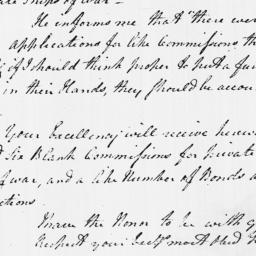 Ships of war —
He informs me that "there were
applications for like Commissions th
if I should think proper to put a fur
in their Hands, they should be accou
Your Excellency will receive herew
Six Blank Commissions for Private
of war, and a like Number of Bonds a
ctions.
I have the Honor to be with g
Respect your Excy's most Obed